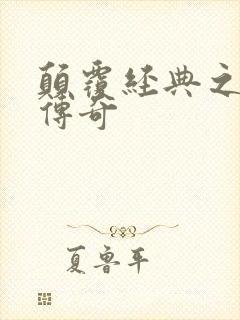 顛覆經典之
傳奇
夏魯平